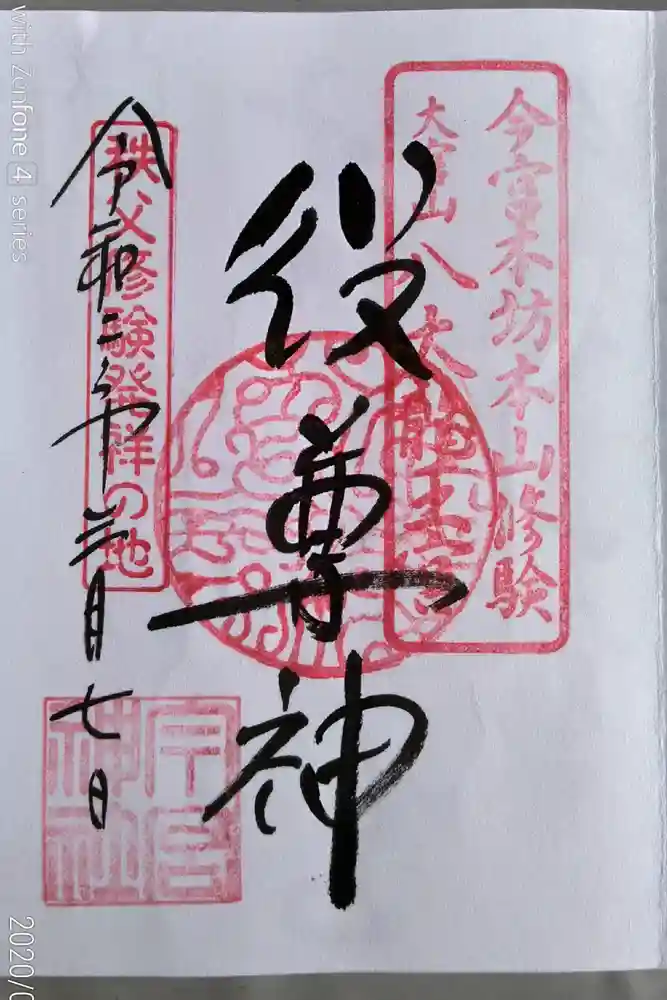 今宮木坊本山修験
大宮山八大龍王宮
役尊神
秩父修験発祥の地
令和二年三月七日
今宮
神社
with Zenfone 4 series
2020/0